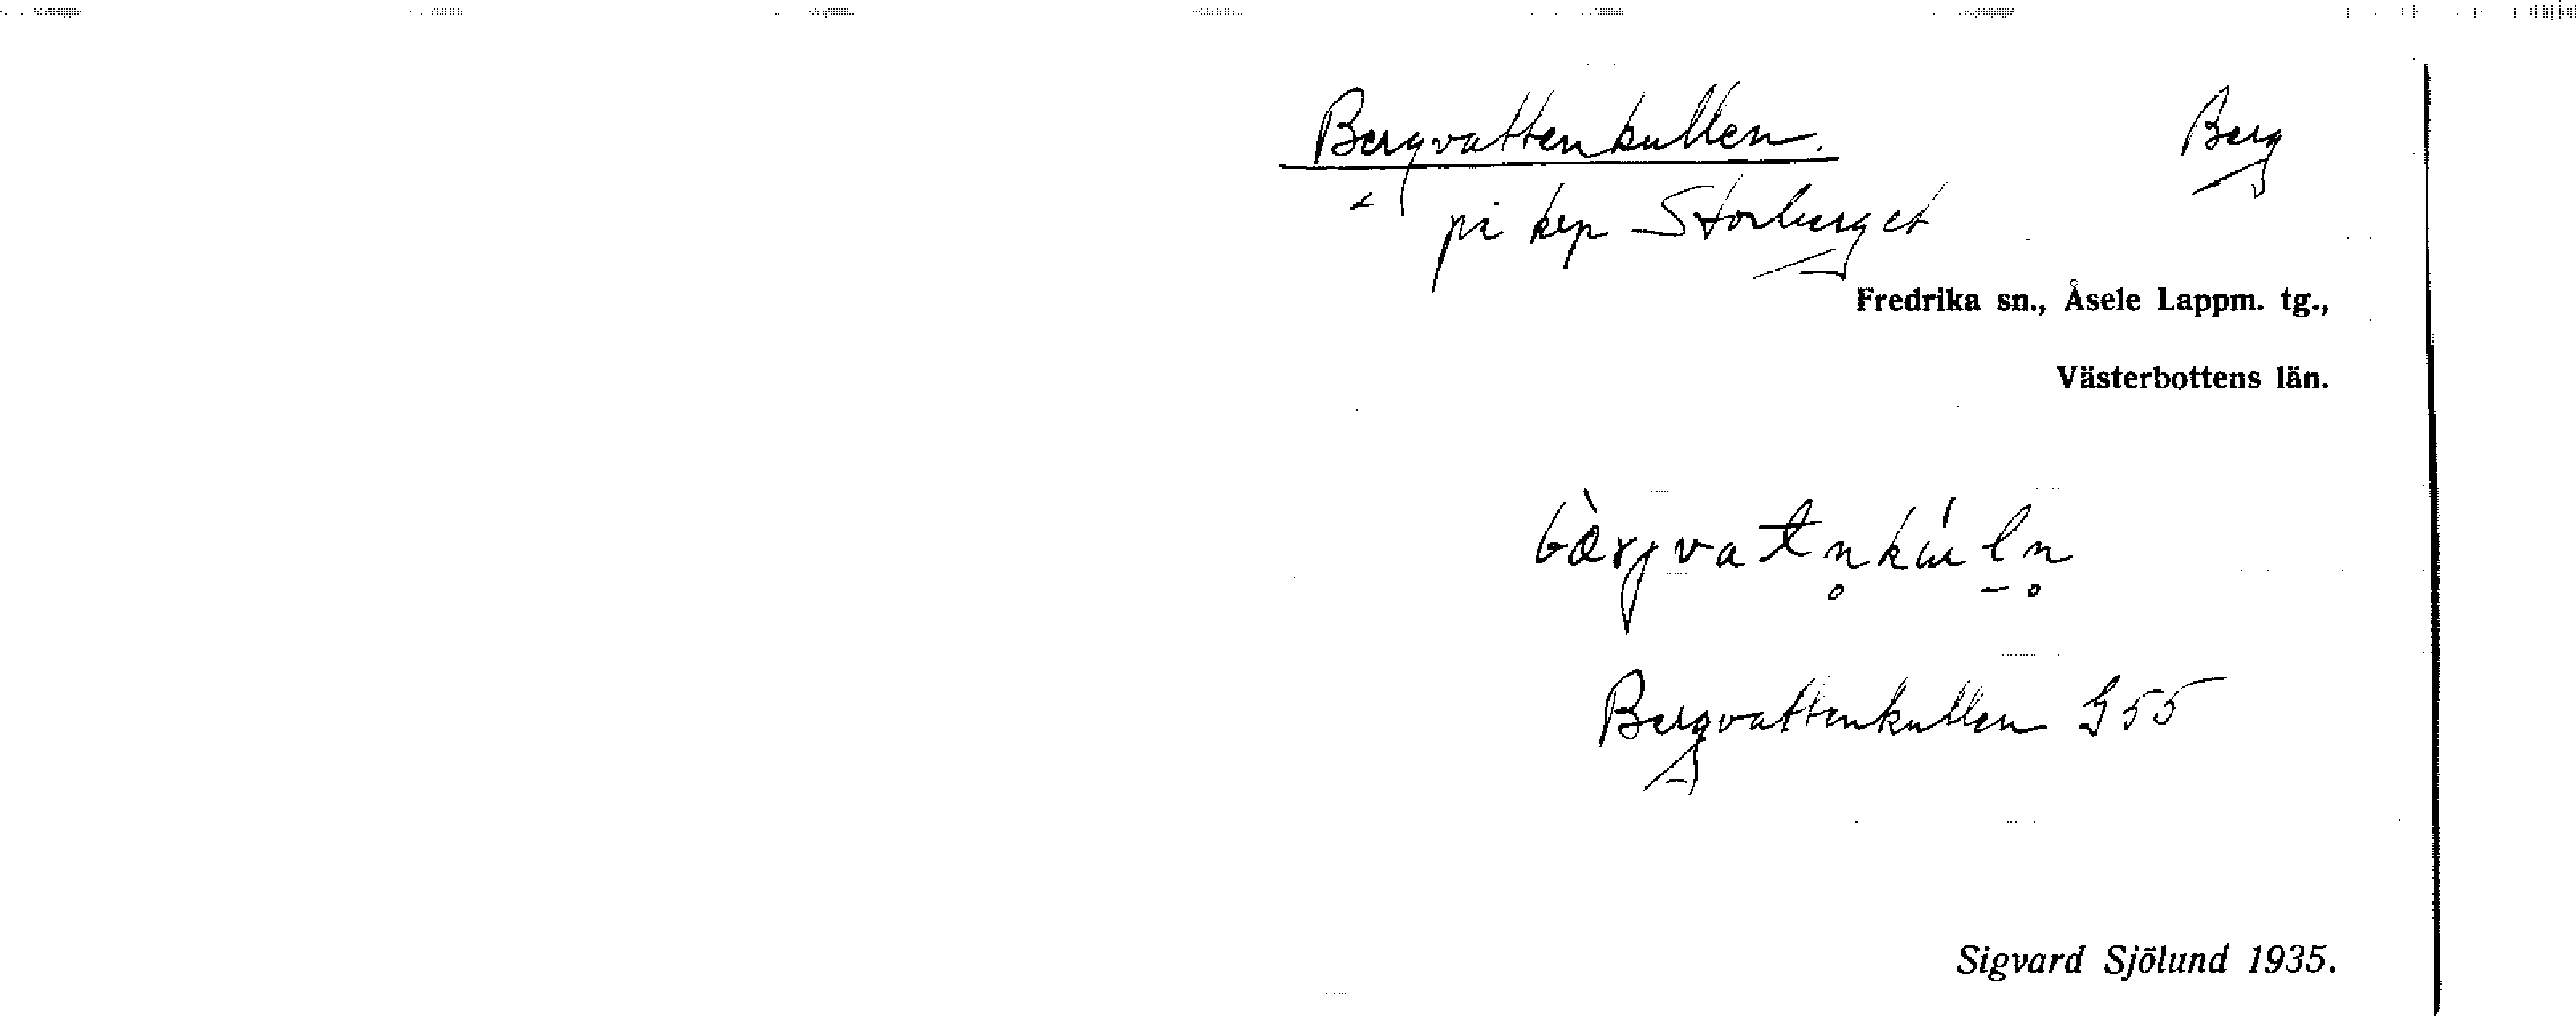 Bergvattenkullen. Berg
på krp Storberget
Fredrika sn., Åsele Lappm. tg.,
Västerbottens län.
Bergvattenkullen G55
Sigvard Sjölund 1935.